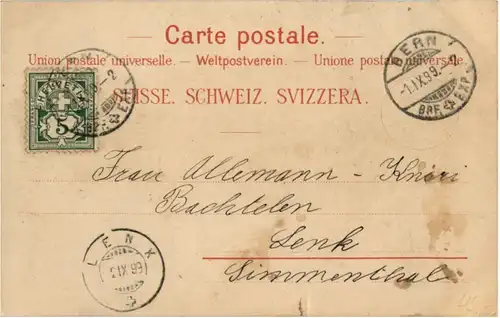 Carte postale.
Union postale universelle. – Weltpostverein. – Unione postale universale.
SUISSE. SCHWEIZ. SVIZZERA.
HELVETIA
5
BERN 1
-1.IX.99.
BRF. EXP.
Frau Allemann - Knöri
Bachtelen
Lenk
Simmenthal
LENK
IX.99